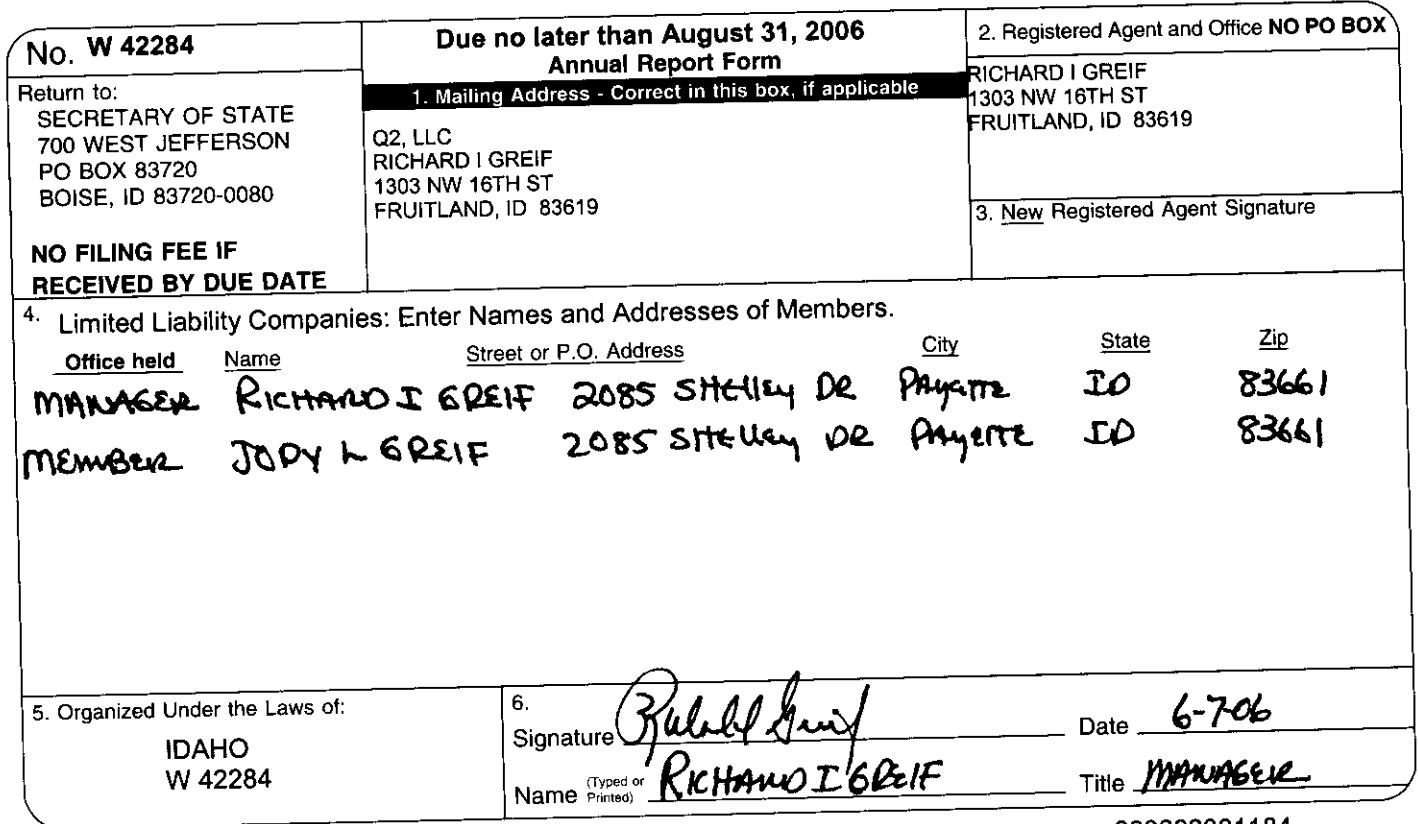 No. W 42284
Return to:
SECRETARY OF STATE
700 WEST JEFFERSON
PO BOX 83720
BOISE, ID 83720-0080
NO FILING FEE IF
RECEIVED BY DUE DATE
Due no later than August 31, 2006
Annual Report Form
1. Mailing Address - Correct in this box, if applicable
Q2, LLC
RICHARD I GREIF
1303 NW 16TH ST
FRUITLAND, ID 83619
2. Registered Agent and Office NO PO BOX
RICHARD I GREIF
1303 NW 16TH ST
FRUITLAND, ID 83619
3. New Registered Agent Signature
4. Limited Liability Companies: Enter Names and Addresses of Members.
Office held Name Street or P.O. Address City State Zip
MANAGER RICHARD I GREIF 2085 SHELLEY DR PAYETTE ID 83661
MEMBER JODY L GREIF 2085 SHELLEY DR PAYETTE ID 83661
5. Organized Under the Laws of:
IDAHO
W 42284
6.
Signature Richard Greif Date 6-7-06
Name (Typed or Printed) RICHARD I GREIF Title MANAGER